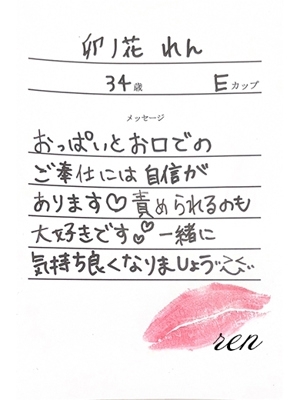 卯ノ花 れん
34歳 Eカップ
メッセージ
おっぱいとお口での
ご奉仕には自信が
あります♡責められるのも
大好きです♡一緒に
気持ち良くなりましょう
ren